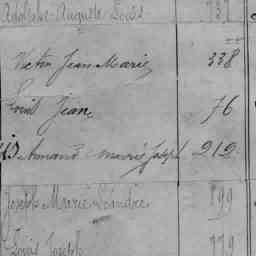 Adolphe-Auguste Louis 737
Victor Jean Marie 338
Louis Jean 76
Armand Marie Joseph 212
Joseph Marie Léandre 899
Louis Joseph 779